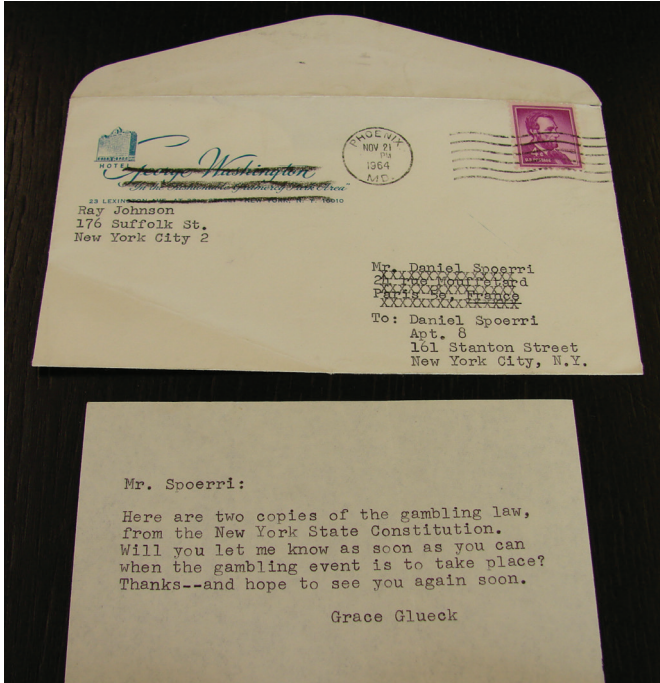 HOTEL
George Washington
"In the
Park Area"
23 LEXIN
NEW YORK, N. Y. 10010
PHOENIX
NOV 21
PM
1964
MD.
Ray Johnson
176 Suffolk St.
New York City 2
Mr. Daniel Spoerri
rue Mouffetard
Paris 5e, France
To: Daniel Spoerri
Apt. 8
161 Stanton Street
New York City, N.Y.
Mr. Spoerri:
Here are two copies of the gambling law,
from the New York State Constitution.
Will you let me know as soon as you can
when the gambling event is to take place?
Thanks--and hope to see you again soon.
Grace Glueck